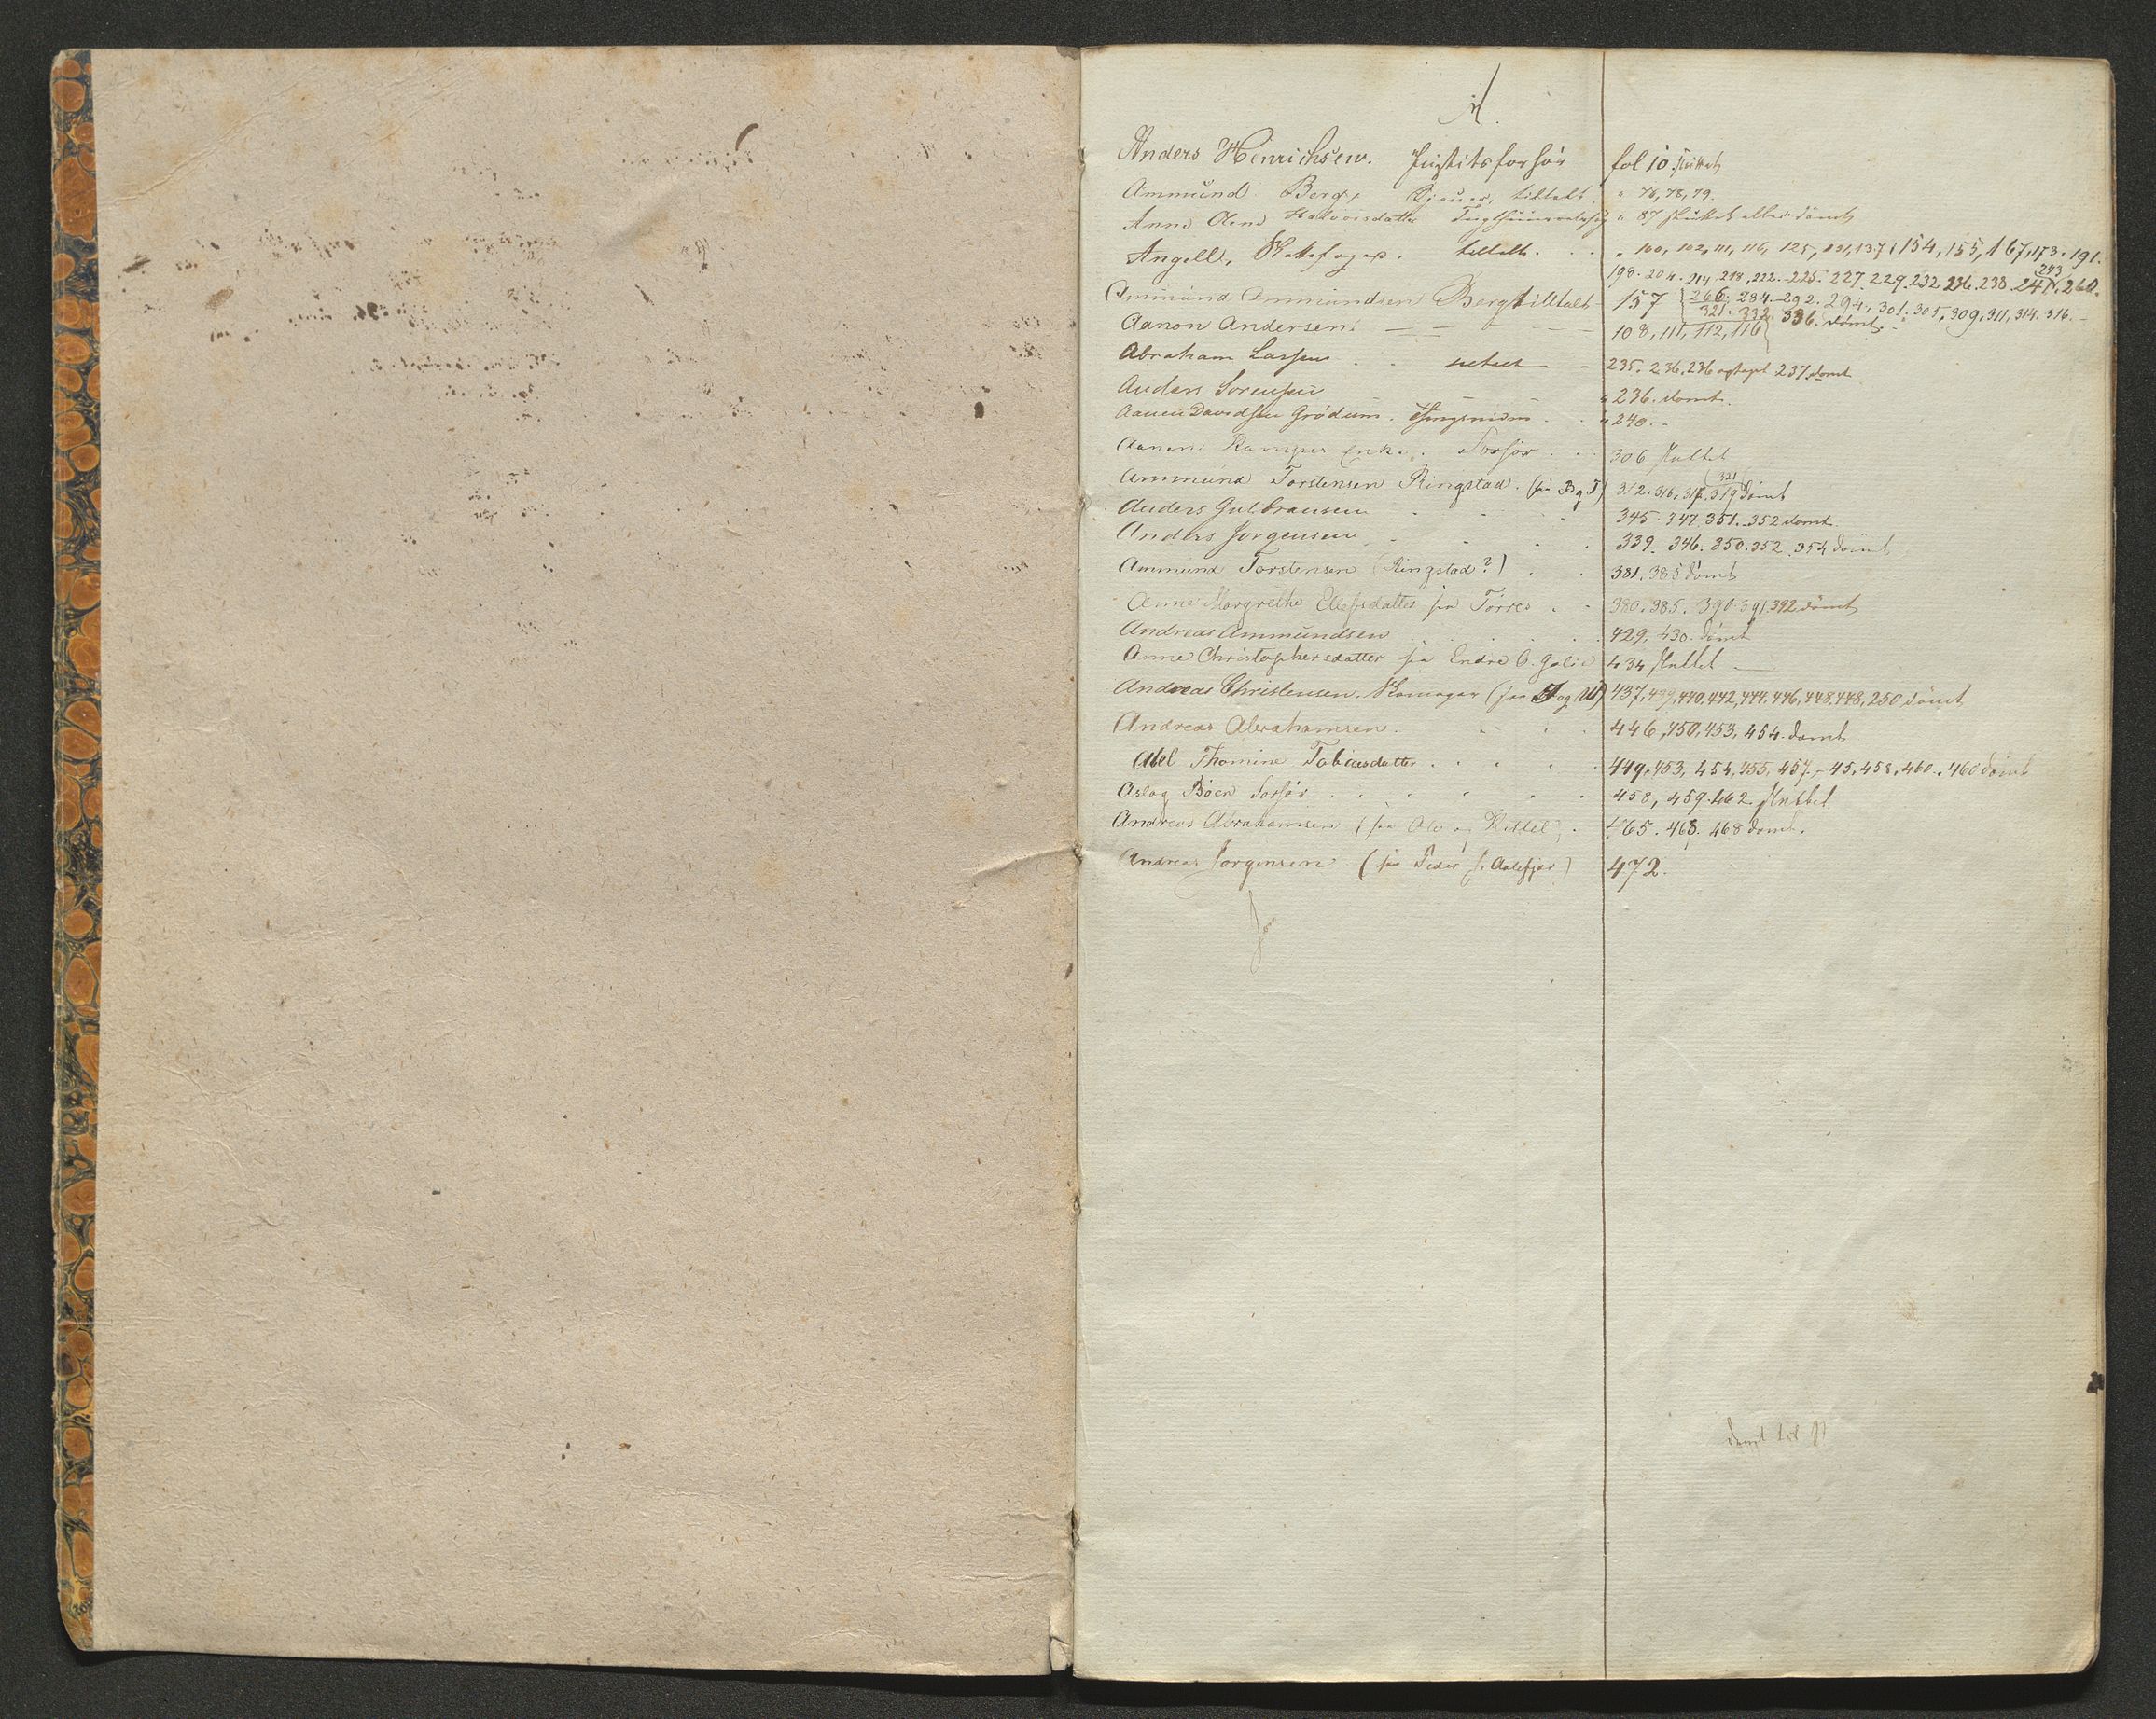 A.
Anders Henrichsen. Justitsforhør fol 10. sluttet
Ammund Berg, tiltalt. " 76, 78, 79.
Anne Olene Halvorsdatter " 87 sluttet eller dömt
Angell, tiltalt. . . " 100, 102, 111, 116, 125, 131, 137, 154, 155, 167, 173. 191.
198. 204. 214. 218, 222. 225. 227. 229. 232. 236. 238. 241. 243 260.
Ammund Ammundsen Berg tiltalt 157 { 266. 284. 292. 294. 301. 305, 309, 311, 314. 316. –
321. 332. 336. dömt.
Aanon Andersen. — — — — 108, 111, 112, 116}
Abraham Larsen . . — 235. 236. 236 optaget 237 dömt
Anders Sorensen — — " 236. domt.
Aanen Davidsen Grödum. Thingsvidne . . " 240. –
Aanen Kampes Enke. Forhör . . . 306 sluttet
Ammund Torstensen Ringstad. (se B og T) 312. 316. 317. 319 (321) dömt
Anders Gulbransen . . . 345. 347. 351. 352 domt.
Anders Jorgensen . . . . 339. 346. 350. 352. 354 dömt
Ammund Torstensen (Ringstad?) . . 381. 385 dömt
Anne Margrethe Ellefsdatter se Törres . . 380. 385. 390. 391. 392 dömt
Andreas Ammundsen . . . . . 429. 430. dömt
Anne Christophersdatter se Endre O. 434 sluttet —
Andreas Christensen. Skomager (se T og U) 437, 439, 440, 442, 444, 446, 448, 448, 250 dömt
Andreas Abrahamsen. . . . 446, 450, 453, 454. domt
Abel Thomine Tobiasdatter . . . . . 449, 453, 454, 455, 457. – 45, 458, 460., 460 dömt
Aslag Böen Forhör . . . . . . 458, 459. 462. sluttet
Andreas Abrahamsen (se Ole og Kittel) . 465. 468. 468 domt.
Andreas Jorgensen (se Peder J. Aalefjær) 472.
domt til